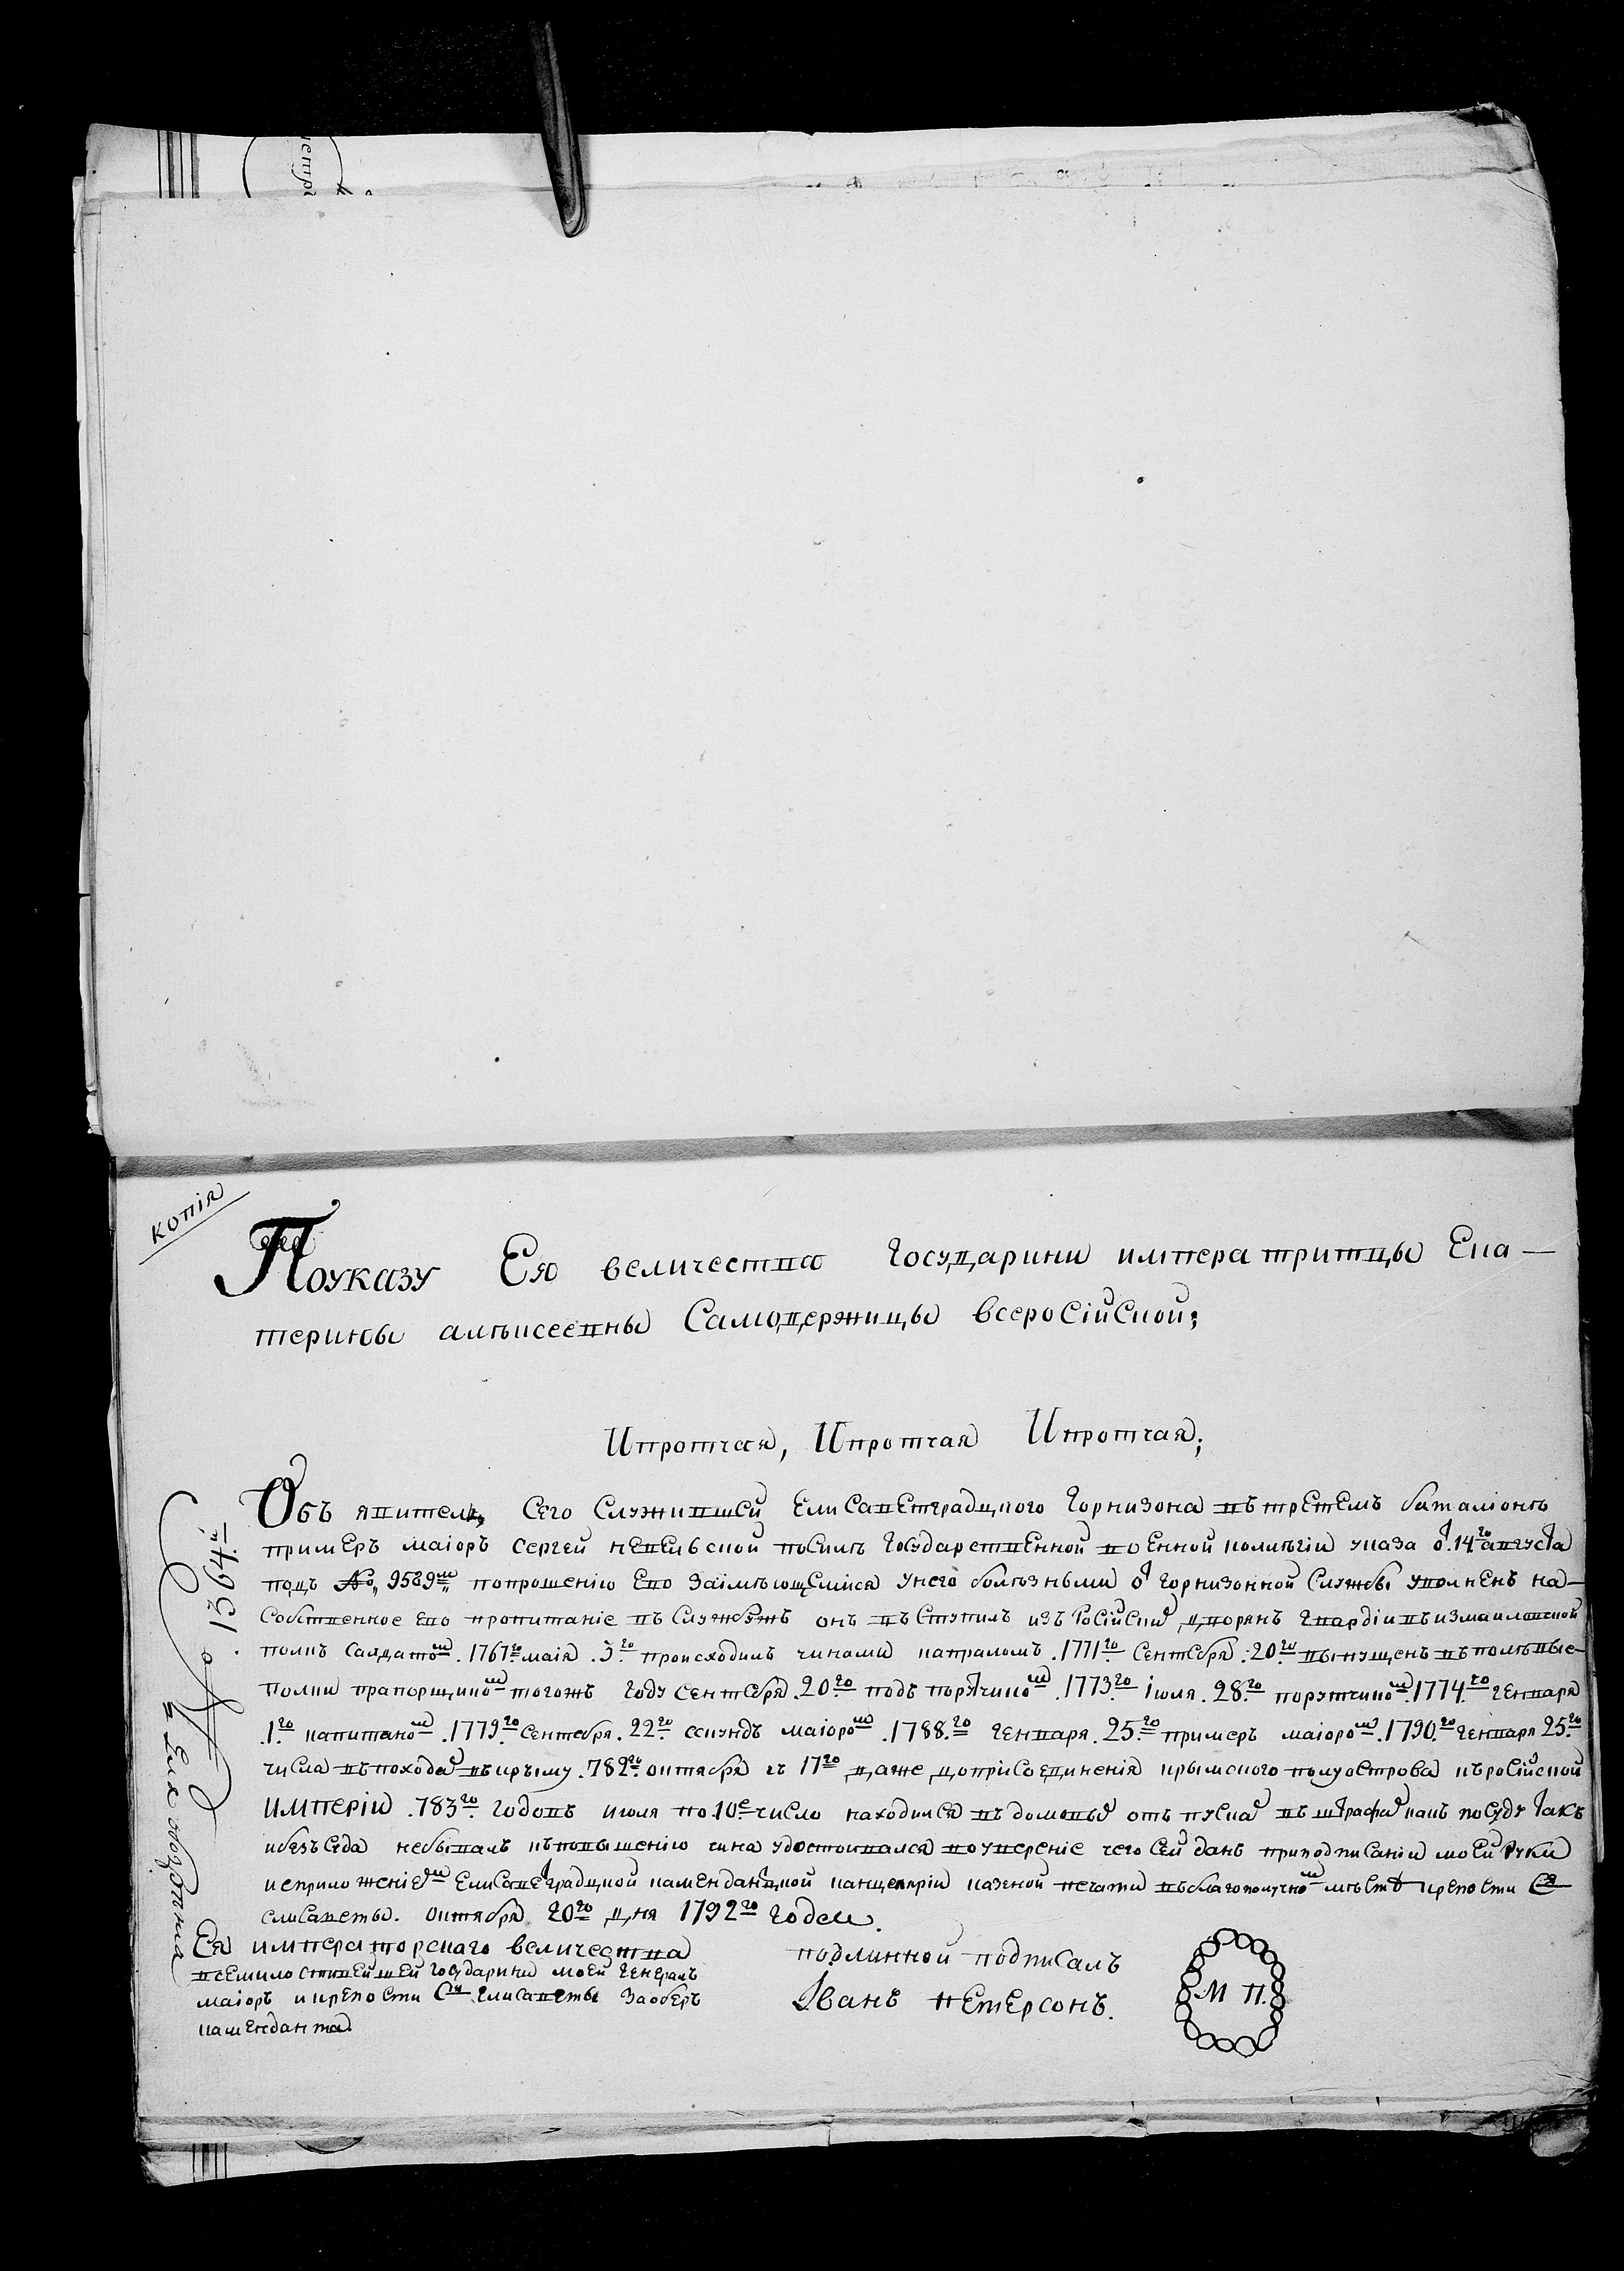 копія
Поуказу Ея величества Государини императритцы Ека—
терины алѣксеевны Самодержицы всеросійской;
Ипротчая, Ипротчая Ипротчая;
Объ явитель Сего Служившей Елисаветградцкого Горнизона въ третемъ баталіонѣ
примеръ маіоръ Сергей посилѣ Государственной военной колѣгіи указа о͡т. 14го августа
подъ №, 9589м попрошенію Ево Заімѣющемися унего болѣзньми о͡т Горнизонной Службы уволненъ на—
Собственное Ево пропитаніе въ Службѣжъ онъ въ Ступилъ изъ Російских дворянъ Гвардіи въ измаиловской
полкъ Салдатом. 1767го маія. 3го происходилъ чинами капраломъ. 1771го Сентебря. 20го выпущенъ въ полѣвые—
Полки прапорщиком тогожъ Году Сентебря. 20го подъ порутчиком. 1773го Іюля. 28го порутчиком. 1774го Генваря
.1го капитаном. 1779го Сентебря. 22го секундъ маіором. 1788го Генваря. 25го примеръ маіором. 1790го Генваря 25го
числа въ походах въ крыму. 782го октября съ 17го даже доприСоединенія крымского полуострова къ російской
Имперіи. 783го годовъ июля по. 10е число находился въ домовых отъ пусках въ штрафах какъ посуду такъ
ибезъ Суда небывалъ къ повышенію чина удостоивался во увереніе чего Сей данъ приподписаніи моей руки
иприложеніем Елисаветградцкой каменданцкой канцелярій казеной печати въ благополучном мѣсте крепости Ся
елисаветы. октября 20го дня 1792го года.
Ея императорскаго величества
всемилостивейшей Государини моей Генералъ
маіоръ и крепости Стй Елисаветы Заоберъ
каменданта
подлинной подписалъ
Іванъ петерсонъ.
М П.
. 1394.й